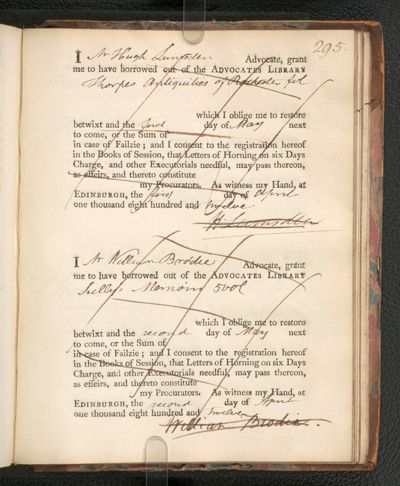 295.
I Mr Hugh Lumsden Advocate, grant
me to have borrowed out of the ADVOCATES LIBRARY
Thorpes Antiquities of Rochester fol
which I oblige me to restore
betwixt and the first day of May next
to come, or the Sum of
in case of Failzie; and I consent to the registration hereof
in the Books of Session, that Letters of Horning on six Days
Charge, and other Executorials needful, may pass thereon,
as effeirs, and thereto constitute
my Procurators. As witness my Hand, at
EDINBURGH, the first day of April
one thousand eight hundred and twelve
H. Lumsden
I Mr William Brodie Advocate, grant
me to have borrowed out of the ADVOCATES LIBRARY
Sully's Memoirs 5 vol
which I oblige me to restore
betwixt and the second day of May next
to come, or the Sum of
in case of Failzie; and I consent to the registration hereof
in the Books of Session, that Letters of Horning on six Days
Charge, and other Executorials needful, may pass thereon,
as effeirs, and thereto constitute
my Procurators. As witness my Hand, at
EDINBURGH, the second day of April
one thousand eight hundred and twelve
William Brodie.